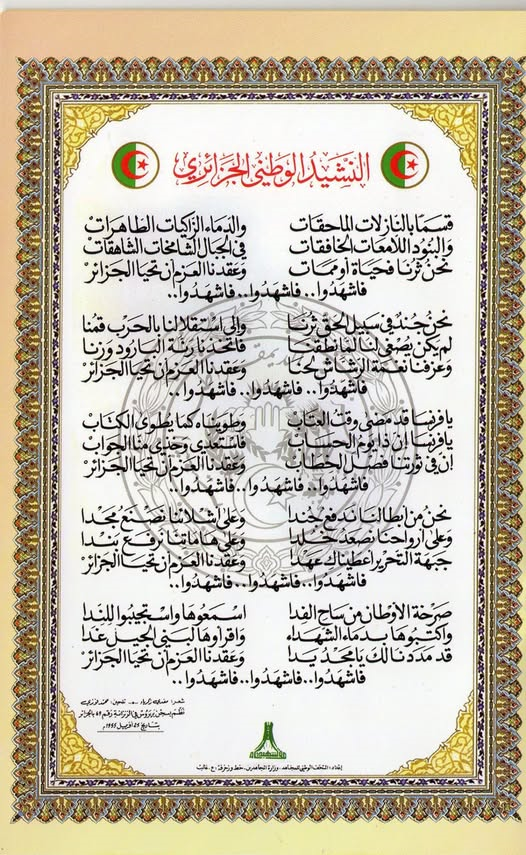 النشيد الوطني الجزائري
قسما بالنازلات الماحقات والدماء الزاكيات الطاهرات
والبنود اللامعات الخافقات في الجبال الشامخات الشاهقات
نحن ثرنا فحياة أو ممات وعقدنا العزم أن تحيا الجزائر
فاشهدوا.. فاشهدوا.. فاشهدوا..
نحن جند في سبيل الحق ثرنا وإلى استقلالنا بالحرب قمنا
لم يكن يصغى لنا لما نطقنا فاتخذنا رنة البارود وزنا
وعزفنا نغمة الرشاش لحنا وعقدنا العزم أن تحيا الجزائر
فاشهدوا.. فاشهدوا.. فاشهدوا..
يا فرنسا قد مضى وقت العتاب وطويناه كما يطوى الكتاب
يا فرنسا إن ذا يوم الحساب فاستعدي وخذي منا الجواب
إن في ثورتنا فصل الخطاب وعقدنا العزم أن تحيا الجزائر
فاشهدوا.. فاشهدوا.. فاشهدوا..
نحن من أبطالنا ندفع جندا وعلى أشلائنا نصنع مجدا
وعلى أرواحنا نصعد خلدا وعلى هاماتنا نرفع بندا
جبهة التحرير أعطيناك عهدا وعقدنا العزم أن تحيا الجزائر
فاشهدوا.. فاشهدوا.. فاشهدوا..
صرخة الأوطان من ساح الفدا اسمعوها واستجيبوا للندا
واكتبوها بدماء الشهداء واقرأوها لبني الجيل غدا
قد مددنا لك يا مجد يدا وعقدنا العزم أن تحيا الجزائر
فاشهدوا.. فاشهدوا.. فاشهدوا..
شعر: مفدي زكرياء - تلحين: محمد فوزي
نظم بسجن بربروس في الزنزانة رقم 69 بالجزائر
بتاريخ 25 أفريل 1955
إعداد: المتحف الوطني للمجاهد - وزارة المجاهدين. خط وزخرفة: ع. غالب